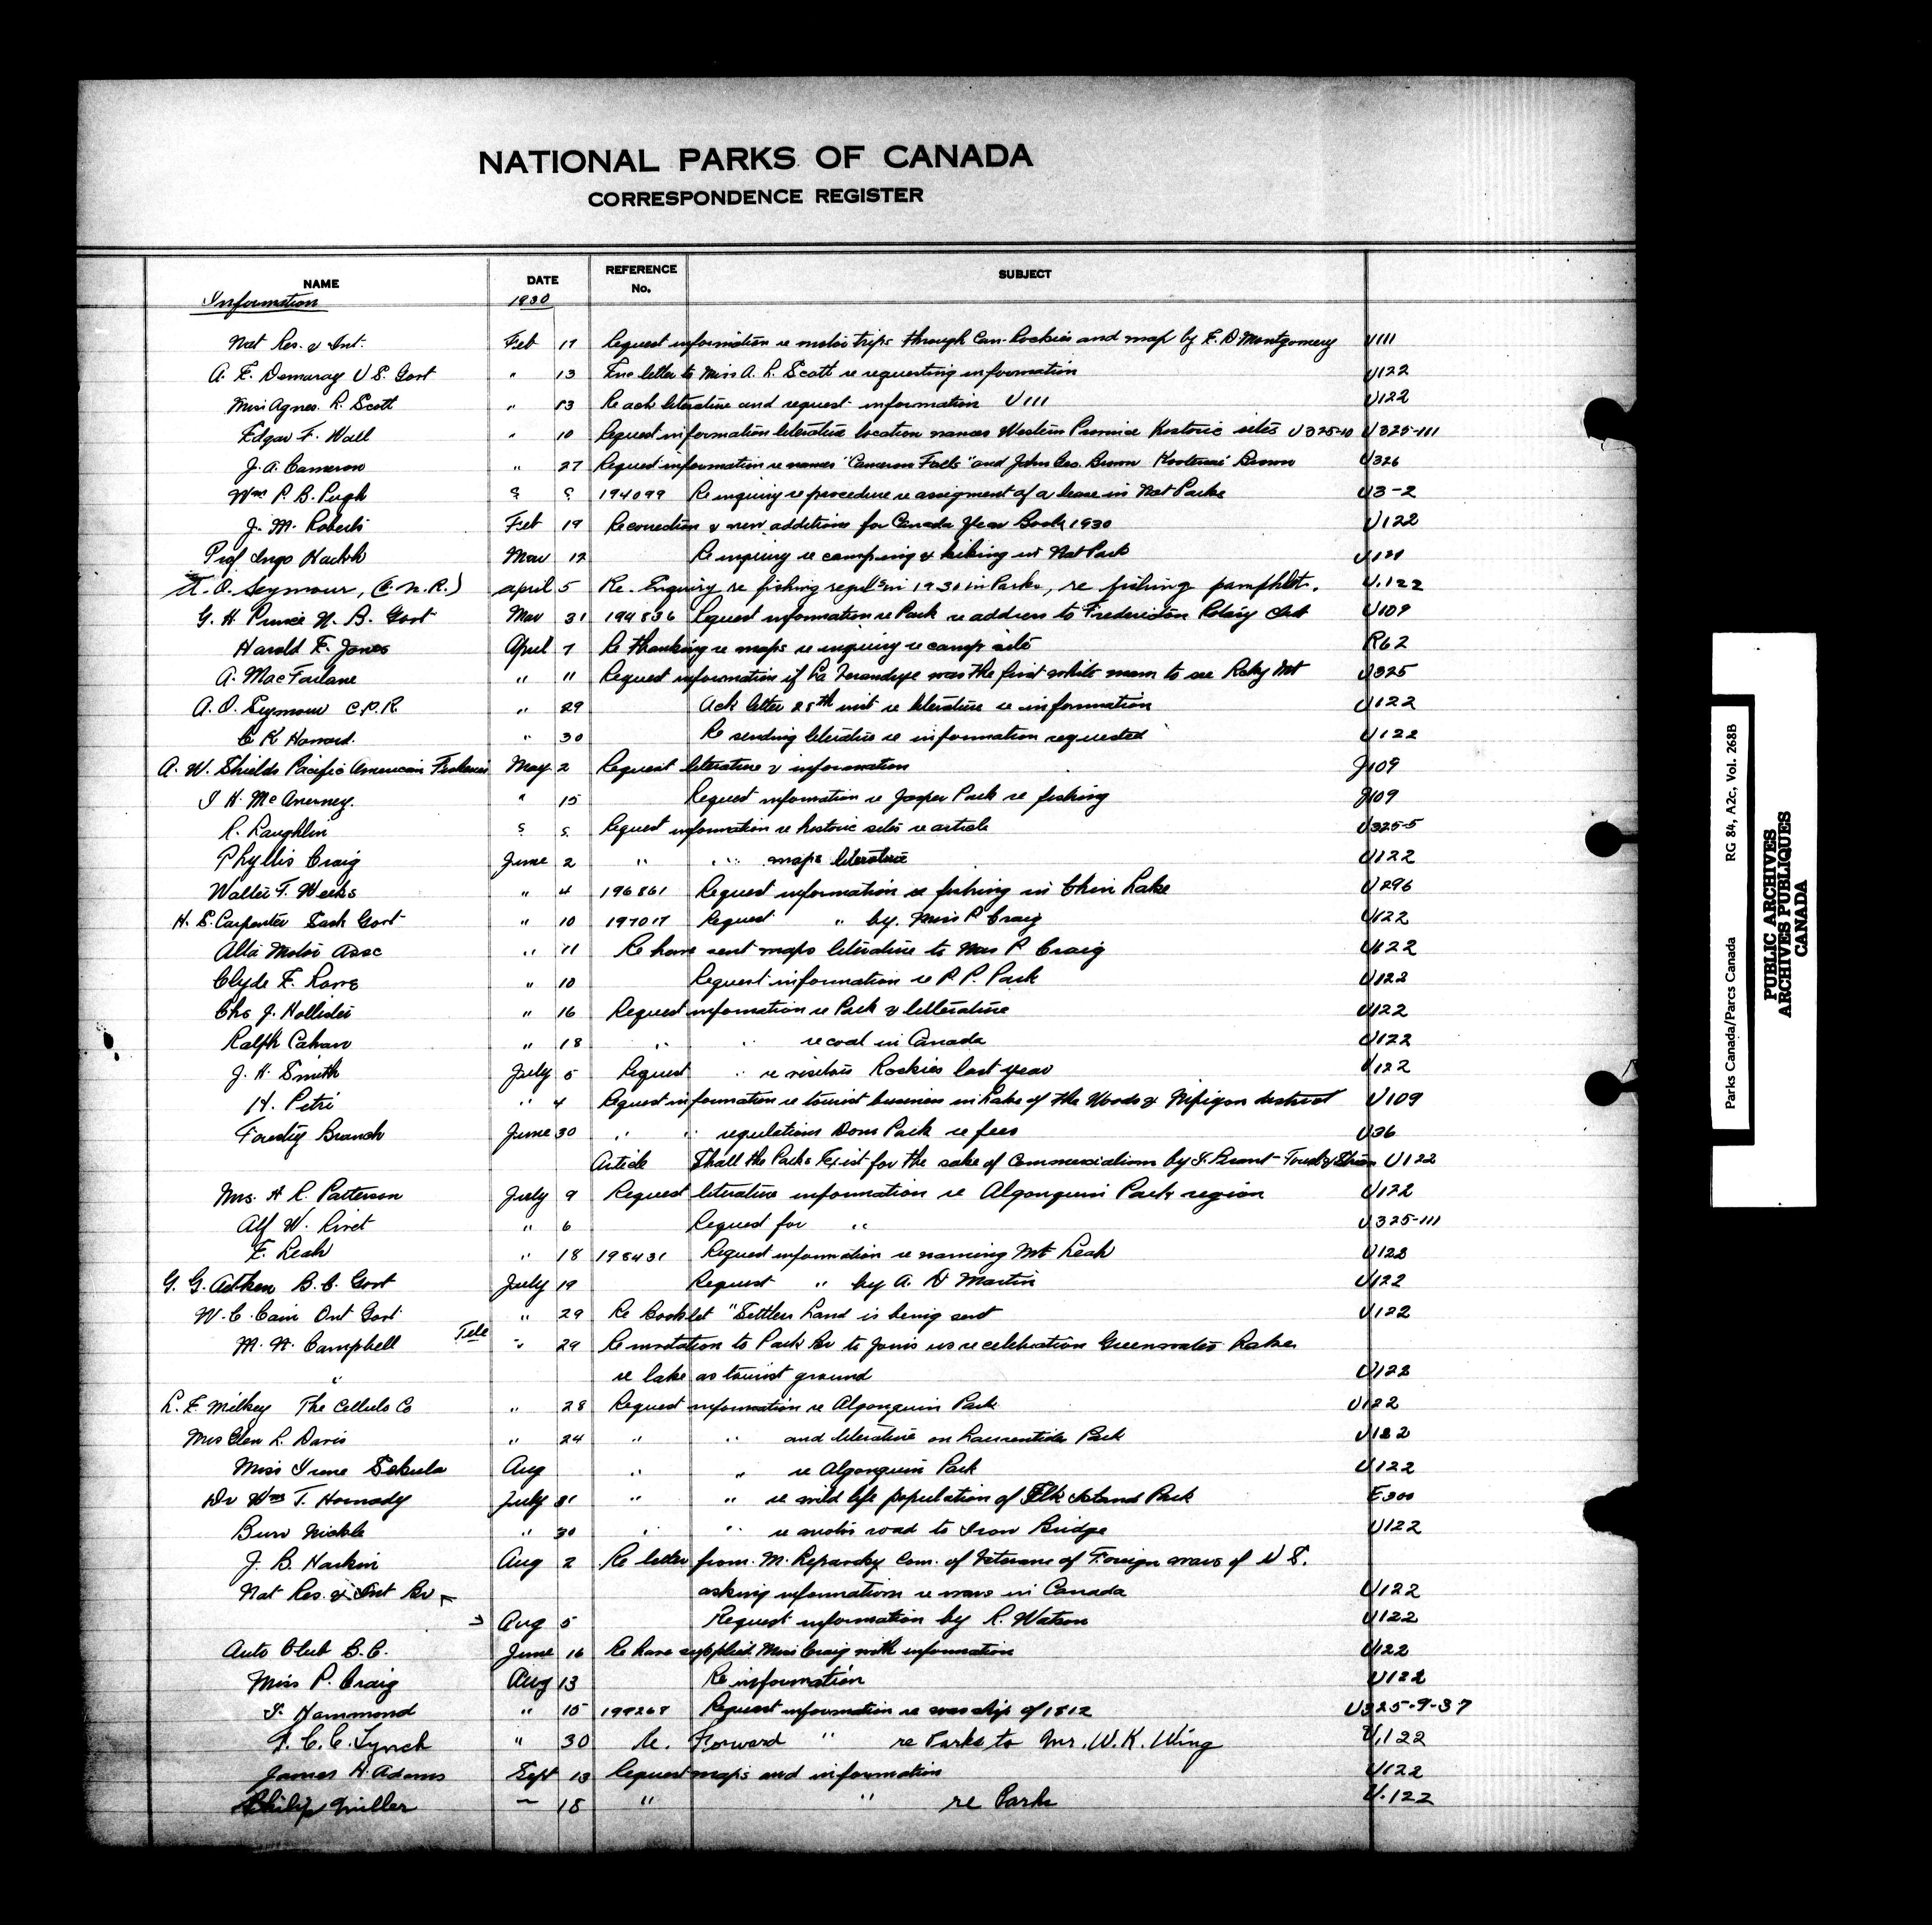 NATIONAL PARKS OF CANADA
CORRESPONDENCE REGISTER
NAME DATE REFERENCE No. SUBJECT
Information 1930
Nat Res. & Int. Feb 17 Request information re motor trips through Can. Rockies and map by E. D. Montgomery U111
A. E. Demaray U S. Govt " 13 Enc letter to Miss A. R. Scott re requesting information U122
Miss Agnes. R. Scott " 13 Re ack literature and request information U111 U122
Edgar F. Wall " 10 Request information literature location names Western Province Historic sites U325-10 U325-111
J. A. Cameron " 27 Request information re names "Cameron Falls" and John Geo. Brown Kootenai Brown U326
Wm P. B. Pugh ? ? 194099 Re inquiry re procedure re assigment of a lease in Nat Parks U3-2
J. M. Roberts Feb 19 Re correction & new additions for Canada Year Book 1930 U122
Prof Ingo Mar 12 Re inquiry re camping & hiking in Nat Park U121
A. O. Seymour, (C. N. R.) April 5 Re. Enquiry re fishing regul'ns in 1930 in Parks, re fishing pamphlet. U.122
G. H. Prince N. B. Govt Mar 31 194836 Request information re Park re address to Fredericton Rotary Club U109
Harold E. Jones April 7 Re thanking re maps re inquiry re camp sites R62
A. MacFarlane " 11 Request information if La Verandrye was the first white man to see Rocky Mt U325
A. O. Seymour C.P.R. " 29 Ack letter 25th inst re literature re information U122
C K Howard. " 30 Re sending literature re information requested U122
A. W. Shields Pacific American Fisheries May 2 Request literature & information J109
J H. McAnerney. " 15 Request information re Jasper Park re fishing J109
R. Laughlin ? ? Request information re historic sites re article U325-5
Phyllis Craig June 2 " " maps literature U122
Walter F. Weeks " 4 196861 Request information re fishing in Chin Lake U296
H. S. Carpenter Sask Govt " 10 197017 Request " by. Miss P Craig U122
Alta Motor Assc " 11 Re have sent maps literature to Miss P Craig U122
Clyde E. " 10 Request information re P. P. Park U122
Chs J. Hollister " 16 Request information re Park & litterature U122
Ralph Cahan " 18 " " re coal in Canada U122
J. H. Smith July 5 Request " re visitors Rockies last year U122
H. Petri " 4 Request information re tourist business in Lake of the Woods & Nipigon district U109
Forestry Branch June 30 " " regulations Dom Park re fees U36
Article Shall the Parks Exist for the sake of Commercialism by S. Brant - U122
Mrs. H R. Patterson July 9 Request literature information re Algonquin Park region U122
Alf W. Rivet " 6 Request for " U325-111
E. Leah " 18 198431 Request information re naming Mt Leah U122
G. G. Aitken B. C. Govt July 19 Request " by A. D Martin U122
W. C. Cain Ont Govt " 29 Re Booklet "Settlers Land is being sent U122
M. N. Campbell Tele " 29 Re invitation to Park Br to joins us re celebration Greenwater Lake
" re lake as tourist ground U122
L. E. Milkey The Celluls Co " 28 Request information re Algonquin Park U122
Mrs Glen L. Davis " 24 " " and literature on Laurentides Park U122
Miss Irene Sekula Aug " " re Algonquin Park U122
Dr Wm T. Hornady July 31 " " re wild life population of Elk Island Park E300
Burr Nickle " 30 " " re motor road to Iron Bridge U122
J. B. Harkin Aug 2 Re letter from. M. Com. of Veterans of Foreign wars of U S.
Nat Res. & Int Br asking information re wars in Canada U122
Aug 5 Request information by R. Watson U122
Auto Club B.C. June 16 Re have supplied Miss Craig with information U122
Miss P. Craig Aug 13 Re information U122
S. Hammond " 15 199267 Request information re warships of 1812 U325-9-37
F. C. C. Lynch " 30 Re. Forward " re Parks to Mr. W. K. Wing U.122
James H. Adams Sept 13 Request maps and information U122
Philip Miller " 18 " " re Park U.122
Parks Canada/Parcs Canada RG 84, A2c, Vol. 268B
PUBLIC ARCHIVES
ARCHIVES PUBLIQUES
CANADA